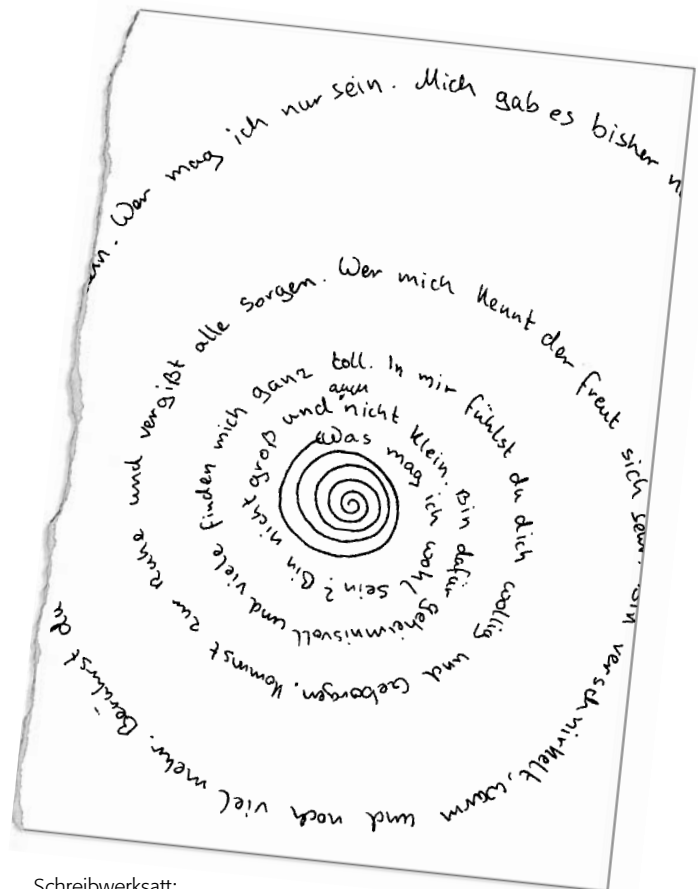 Was mag ich wohl sein? Bin nicht groß und auch nicht klein. Bin dafür geheimnisvoll und viele finden mich ganz toll. In mir fühlst du dich wollig und Geborgen. Kommst zur Ruhe und vergißt alle Sorgen. Wer mich kennt der freut sich sehr. Bin verschnirkelt, warm und noch viel mehr. Berührst du
Wer mag ich nur sein. Mich gab es bisher
Schreibwerksatt: